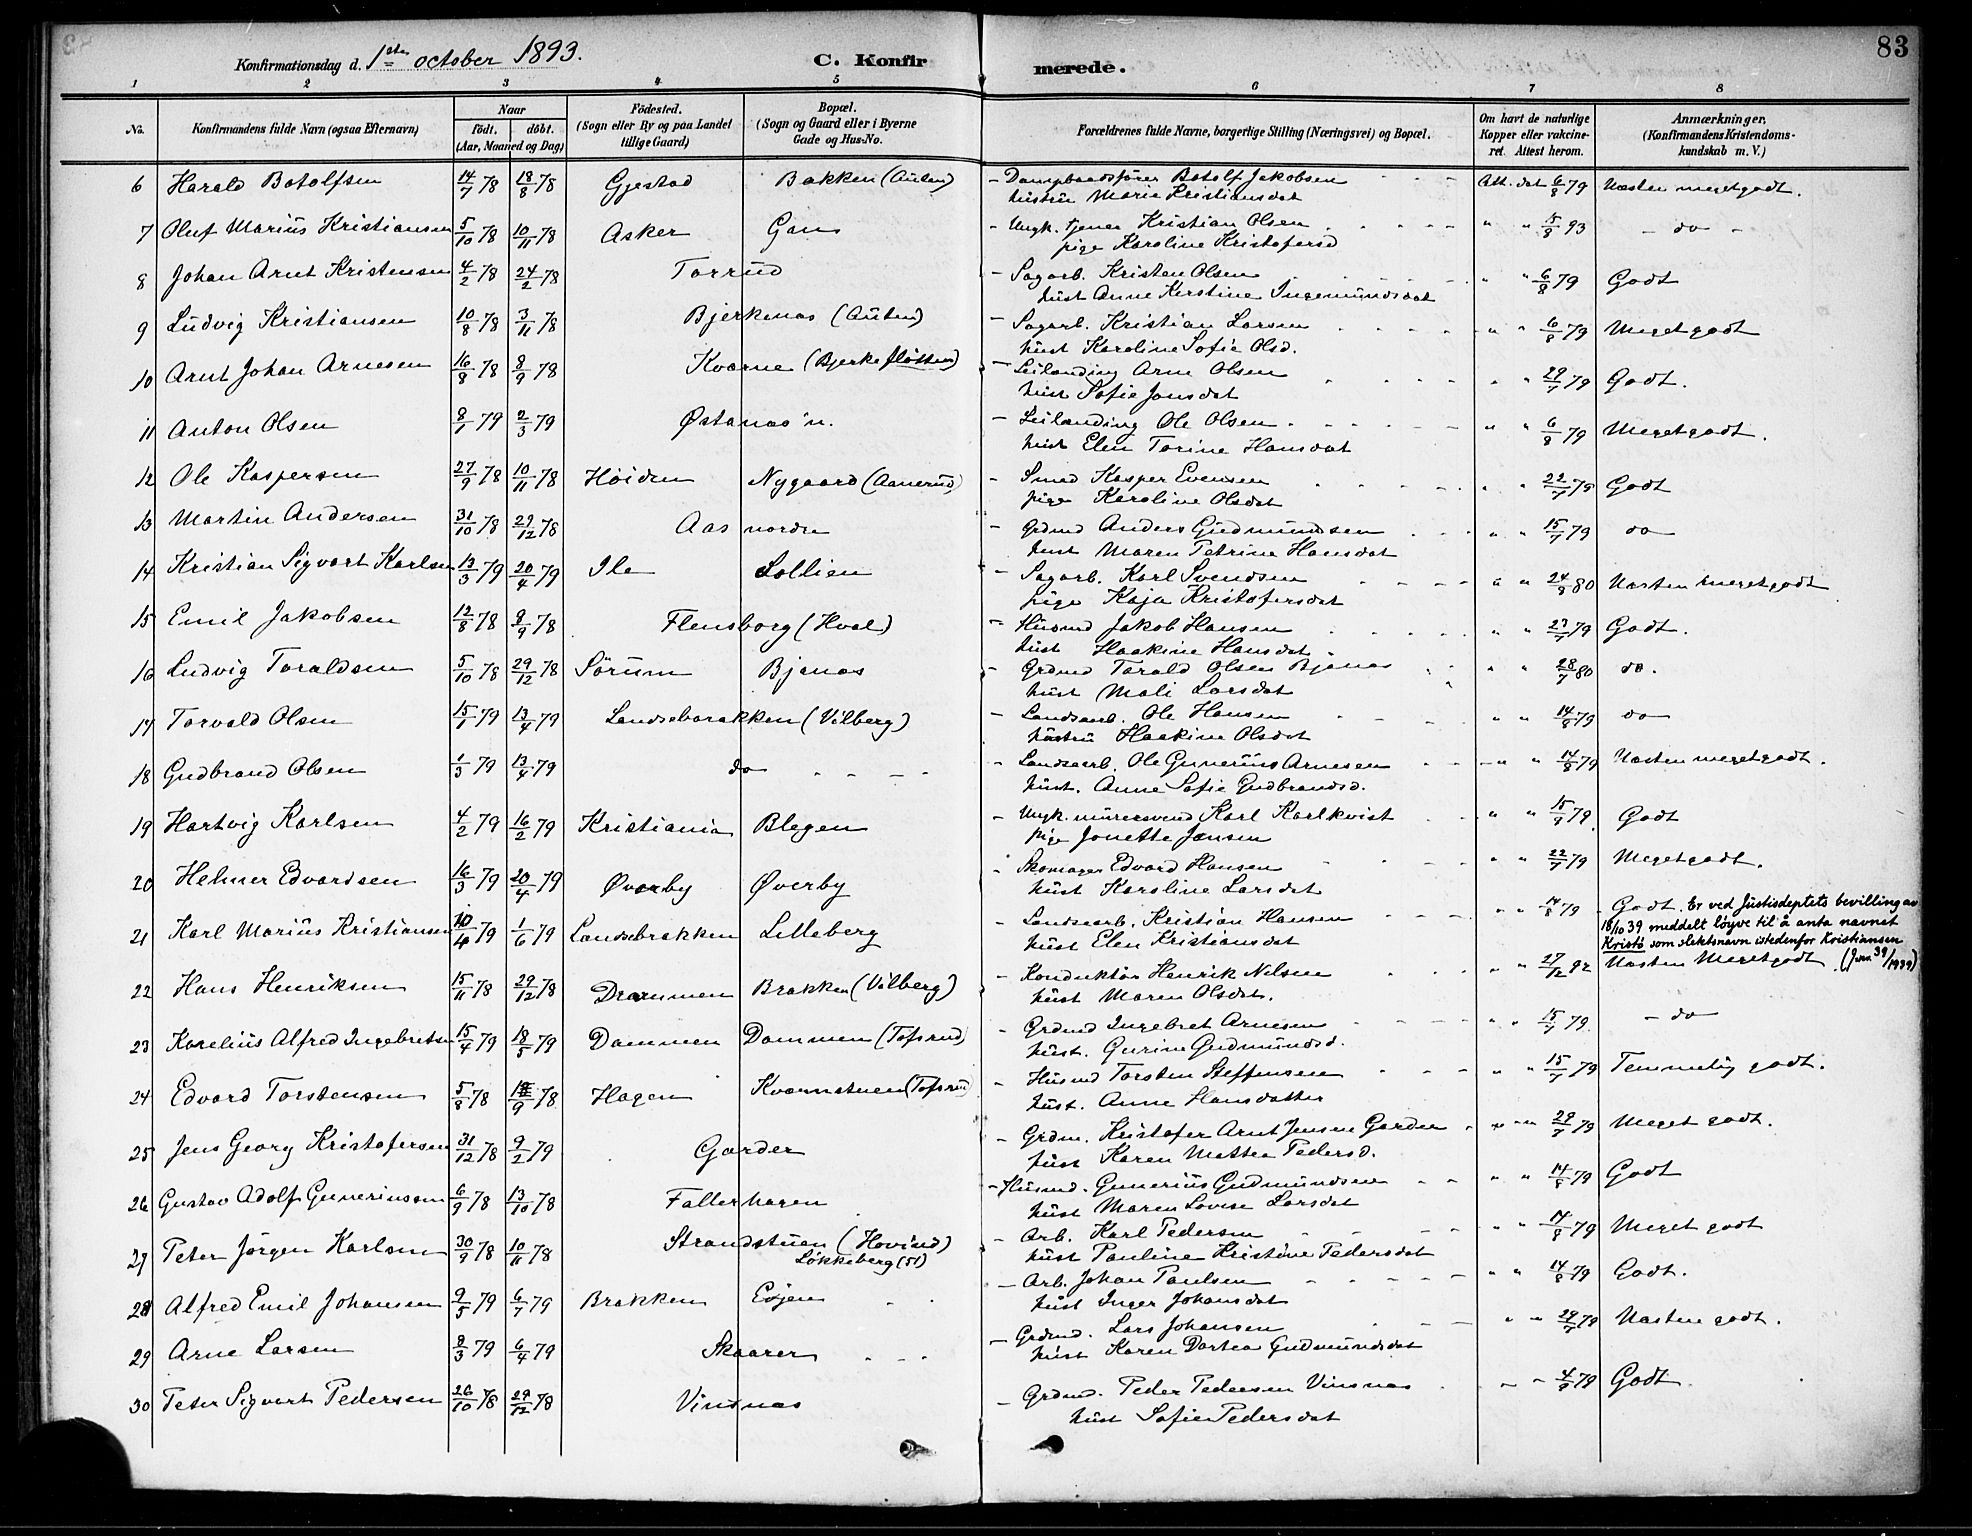 Konfirmationsdag d. 1ste october 1893. C. Konfirmerede. 83
1 2 3 4 5 6 7 8
No. Konfirmandens fulde Navn (ogsaa Efternavn) Naar födt. döbt. (Aar, Maaned og Dag) Födested. (Sogn eller By og paa Landet tillige Gaard) Bopæl. (Sogn og Gaard eller i Byerne Gade og Hus-No. Forældrenes fulde Navne, borgerlige Stilling (Næringsvei) og Bopæl. Om havt de naturlige Kopper eller vakcineret. Attest herom. Anmærkninger. (Konfirmandens Kristendomskundskab m. V.)
6 Harald Botolfsen 14/7 78 18/8 78 Gjestad Bakken (Auten) – Dampbaadsfører Botolf Jakobsen Att. dat 6/8 79 Næsten meget godt.
hustru Marie Kristiansdat
7 Oluf Marius Kristiansen 5/10 78 10/11 78 Asker Gan – Ungk. tjener Kristian Olsen " " 15/8 93 – do –
pige Karoline Kristofersd
8 Johan Arnt Kristensen 4/2 78 24/2 78 Torrud – Sagarb. Kristen Olsen " " 6/8 79 Godt
hust Anne Kerstine Ingemundsdat
9 Ludvig Kristiansen 10/8 78 3/11 78 Bjerkenæs (Auten) – Sagarb. Kristian Larsen " " 6/8 79 Meget godt
hust Karoline Sofie Olsd.
10 Arnt Johan Arnesen 16/8 78 8/9 78 Kværne (Bjerkefløtten) – Leilænding Arne Olsen " " 29/7 79 Godt.
hust Sofie Jonsdat
11 Anton Olsen 8/1 79 2/3 79 Østanaas n. – Leilænding Ole Olsen " " 6/8 79 Meget godt.
hust Elen Torine Hansdat
12 Ole Kaspersen 27/9 78 10/11 78 Høiden Nygaard (Aanerud) – Smed Kasper Evensen " " 22/7 79 Godt
pige Karoline Olsdat
13 Martin Andersen 31/10 78 29/12 78 Aas nordre – Grdmd Anders Gudmundsen " " 15/7 79 do
hust Maren Petrine Hansdat
14 Kristian Sigvart Karlsen 13/3 79 20/4 79 Ile Lollien – Sagarb. Karl Svendsen " " 24/8 80 Næsten meget godt
pige Kaja Kristofersdat
15 Emil Jakobsen 12/8 78 8/9 78 Flensborg (Hval) – Husmd Jakob Hansen " " 23/7 79 Godt.
hust Haakine Hansdat
16 Ludvig Toraldsen 5/10 78 29/12 78 Sörum Bjønæs – Grdmd Torald Olsen Bjønæs " " 28/7 80 do.
hust Mali Larsdat
17 Torvald Olsen 15/1 79 13/4 79 Landsebrakken (Vilberg) – Landsearb. Ole Hansen " " 14/8 79 do
hustru Haakine Olsdat
18 Gudbrand Olsen 1/3 79 13/4 79 do – Landsearb. Ole Gunerius Arnesen " " 14/8 79 Næsten meget godt.
hust. Anne Sofie Gudbrandsd.
19 Hartvig Karlsen 4/2 79 16/2 79 Kristiania Blegen – Ungk. murersvend Karl Karlkvist " " 15/9 79 Godt
pige Jonette Jansen
20 Helmer Edvardsen 16/3 79 20/4 79 Øverby Øverby – Skomager Edvard Hansen " " 22/7 79 Meget godt.
hust Karoline Larsdat
21 Karl Marius Kristiansen 10/4 79 1/6 79 Landsebrakken Lilleberg – Landsearb. Kristian Hansen " " 14/8 79 Godt. Er ved Justisdeptets bevilling av
hust Elen Kristiansdat 18/10 39 meddelt løyve til å anta navnet
Kristø som slektsnavn istedenfor Kristiansen
22 Hans Henriksen 15/11 78 29/12 78 Drammen Brakken (Vilberg) – Konduktør Henrik Nilsen " " 27/12 92 Næsten Meget godt (Jnr. 39/1939)
hust Maren Olsdat.
23 Karelius Alfred Ingebretsen 15/4 79 18/5 79 Dammen Dammen (Tofsrud) – Grdmd Ingebret Arnesen " " 15/7 79. – do
hust. Gurine Gudmundsd.
24 Edvard Torstensen 5/8 78 /9 78 Hagen Kværnstuen (Tofsrud) – Husmd Torsten Steffensen " " 15/7 79 Temmelig godt.
hust. Anne Hansdatter
25 Jens Georg Kristofersen 31/12 78 9/2 79 Garder – Grdm. Kristofer Arnt Jensen Garder " " 29/7 79 Meget godt.
hust Karen Mathea Pedersd.
26 Gustav Adolf Guneriussen 6/9 78 13/10 78 Fallerhagen – Husmd. Gunerius Gudmundsen " " 14/8 79 Godt
hust Maren Lovise Larsdat
27 Peter Jørgen Karlsen 30/9 78 10/11 78 Strandstuen (Hovind) – Arb. Karl Pedersen " " 14/8 79 Meget godt
Løkkeberg (51) hust Pauline Kristine Pedersdat
28 Alfred Emil Johansen 9/5 79 6/7 79 Brakken Eojen – Arb. Johan Paulsen " " 14/8 79 Godt.
hust Inger Johansdat
29 Arne Larsen 8/3 79 6/4 79 Skaarer – Grdmd. Lars Johansen " " 29/7 79 Næsten godt.
hust Karen Dortea Gudmundsdat
30 Peter Sigvart Pedersen 26/10 78 29/12 78 Vinsnæs – Grdmd. Peder Pedersen Vinsnæs – – 4/9 79 Godt
hust Sofie Pedersdat